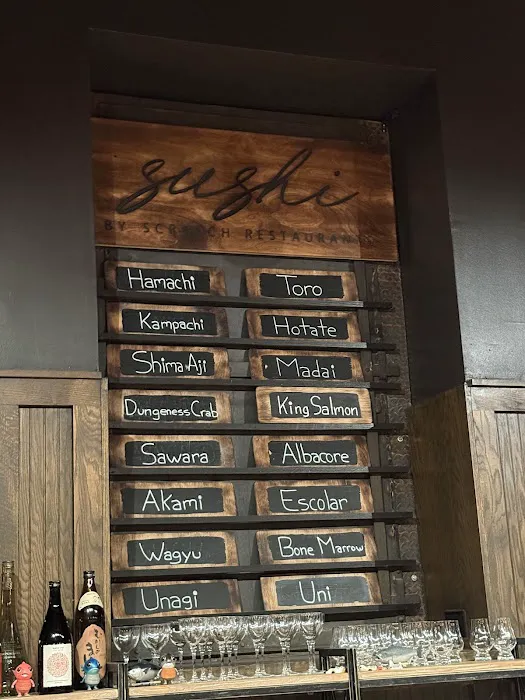 sushi
BY SCRATCH RESTAURANTS
Hamachi Toro
Kampachi Hotate
Shima Aji Madai
Dungeness Crab King Salmon
Sawara Albacore
Akami Escolar
Wagyu Bone Marrow
Unagi Uni